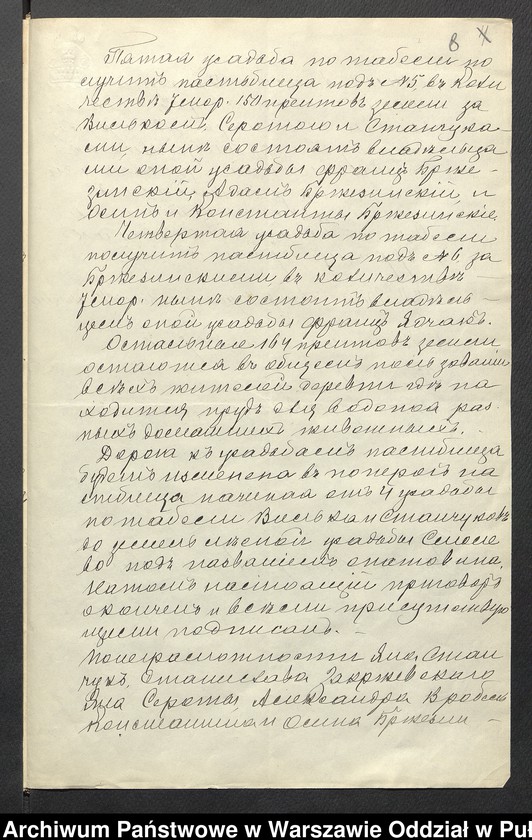 8
Пятая усадьба по табели по
лучитъ пастбища подъ №5, въ коли
чествѣ 7 мор. 150 прентовъ земли за
Вилькомъ, Серотою и Станчука
ми, нынѣ состоятъ владѣльца
ми оной усадьбы Францъ Брже-
зинскій, Адамъ Бржезинскій и
Осипъ и Константы Бржезинскіе.
Четвертая усадьба по табели
получитъ пастбища подъ №6 за
Бржезинскими въ количествѣ
7 мор. нынѣ состоитъ владѣль-
цемъ оной усадьбы Францъ
Остальные 164 прентовъ земли
остаются въ общемъ пользованіи
всѣхъ жителей деревни гдѣ на
ходится прудъ для водопоя раз-
ныхъ домашнихъ животныхъ.
Дорога къ усадьбамъ пастбища
будетъ измѣнена въ поперегъ па
стбища начиная отъ 4 усадьбы
по табели Вилька и Станчуковъ
до усадьбы
во подъ названіемъ
На томъ настоящій приговоръ
оконченъ и всѣми присутствую
щими подписанъ. –
По неграмотности Яна Стан
чукъ, Станислава Закржевскаго
Яна Сероты Александра Вробель
Константина и Осипа Бржезин-
Archiwum Państwowe w Warszawie Oddział w Puł